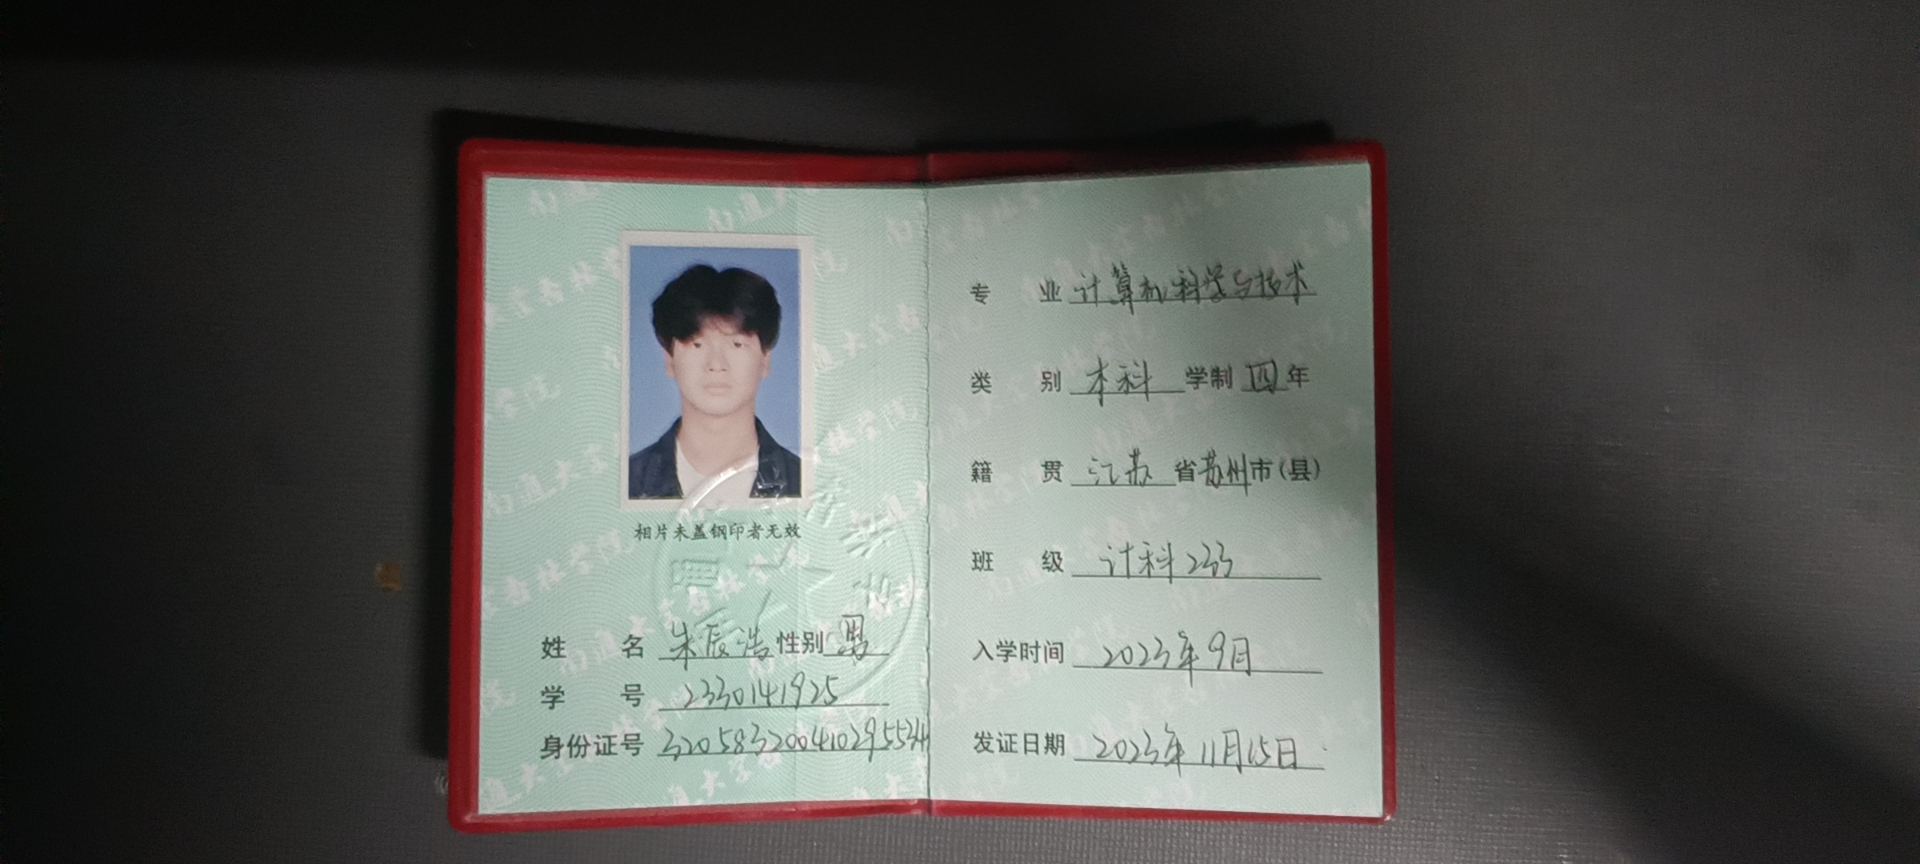 相片未盖钢印者无效
姓 名 朱辰浩 性别 男
学 号 2330141925
身份证号 320583200410295534
专 业 计算机科学与技术
类 别 本科 学制 四 年
籍 贯 江苏 省 苏州 市(县)
班 级 计科233
入学时间 2023年9月
发证日期 2023年11月15日